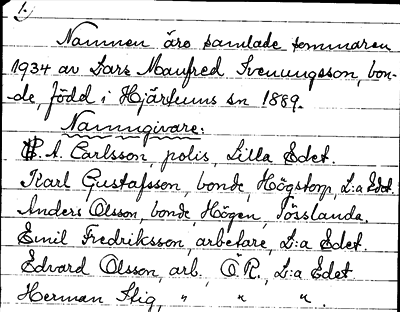 1.
Namnen äro samlade sommaren
1934 av Lars Manfred Svenungsson, bon-
de, född i Hjärtums sn 1889.
Namngivare:
P. A. Carlsson, polis, Lilla Edet.
Karl Gustafsson, bonde, Högstorp, L:a Edet.
Anders Olsson, bonde, Högen, Fösslanda.
Emil Fredriksson, arbetare, L:a Edet.
Edvard Olsson, arb., Ö.R., L:a Edet
Herman Stig, " " " .